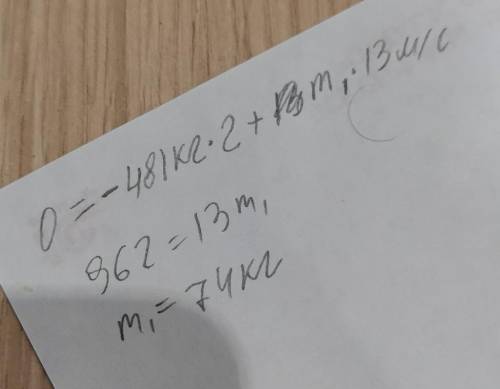 0 = - 481кг · 2 + m₁ · 13 м/с
962 = 13 m₁
m₁ = 74 кг